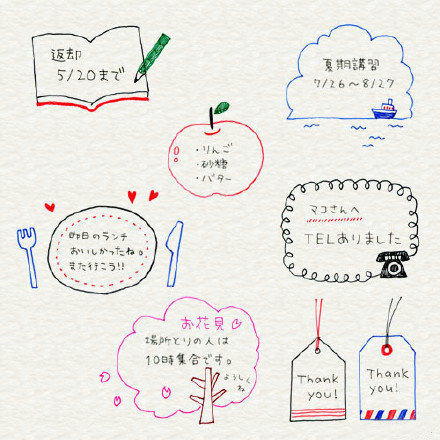 返却
5/20まで
夏期講習
7/26〜8/27
・りんご
・砂糖
・バター
昨日のランチ
おいしかったね。
また行こう!!
マコさんへ
TELありました
お花見
場所とりの人は
10時集合です。
よろしく
ね
Thank
you!
Thank
you!